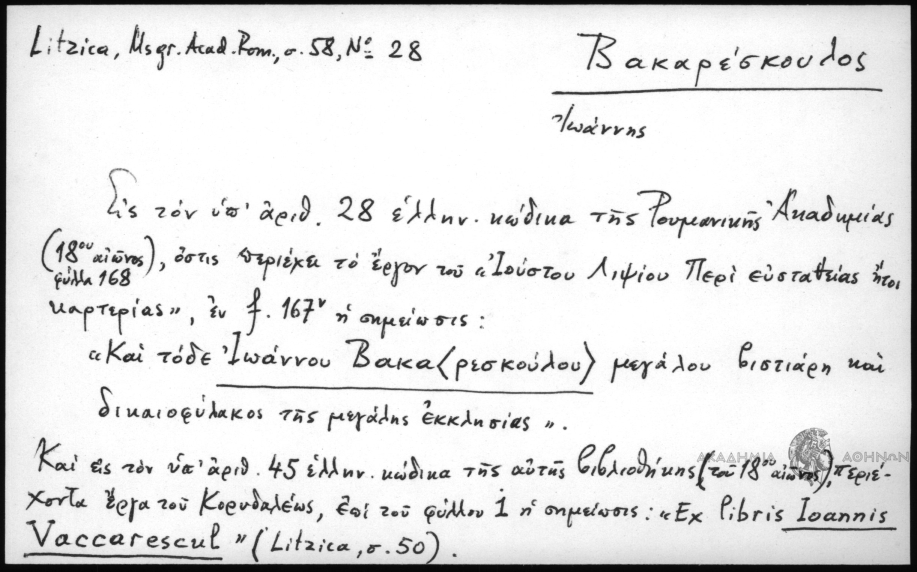 Litzica, Ms gr. Acad. Rom., σ. 58, Nº 28
Βακαρέσκουλος
Ἰωάννης
Εἰς τὸν ὑπ' ἀριθ. 28 ἑλλην. κώδικα τῆς Ρουμανικῆς Ἀκαδημίας
(18ου αἰῶνος φύλλα 168), ὅστις περιέχει τὸ ἔργον τοῦ «Ἰούστου Λιψίου Περὶ εὐσταθείας ἤτοι
καρτερίας», ἐν f. 167v ἡ σημείωσις:
«Καὶ τόδε Ἰωάννου Βακα〈ρεσκούλου〉 μεγάλου βιστιάρη καὶ
δικαιοφύλακος τῆς μεγάλης ἐκκλησίας».
Καὶ εἰς τὸν ὑπ' ἀριθ. 45 ἑλλην. κώδικα τῆς αὐτῆς βιβλιοθήκης (τοῦ 18ου αἰῶνος), περιέ-
χοντα ἔργα τοῦ Κορυδαλέως, ἐπὶ τοῦ φύλλου 1 ἡ σημείωσις: «Ex libris Ioannis
Vaccarescul» (Litzica, σ. 50).
ΑΚΑΔΗΜΙΑ ΑΘΗΝΩΝ